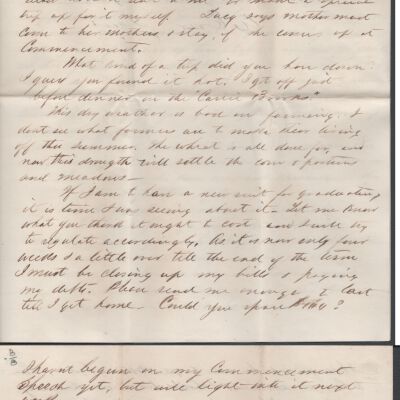 trip up for it myself. Lucy says mother must
come to her mothers & stay, if she comes up at
Commencement.
What kind of a trip did you have down?
I guess you found it hot. I got off just
before dinner on the "Carrie Brooks."
This dry weather is bad on farming. I
dont see what farmers are to make their living
off this summer. The wheat is all done for, and
now this drought will settle the corn & potatoes
and meadows—
If I am to have a new suit for graduating
it is time I was seeing about it. Let me know
what you think it ought to cost and I will try
to regulate accordingly. As it is now only four
weeks & a little over till the end of the term
I must be closing up my bills & paying
my debts. Please send me enough to last
till I get home. Could you spare ?
I havnt begun on my Commencement
Speech yet, but will light into it next